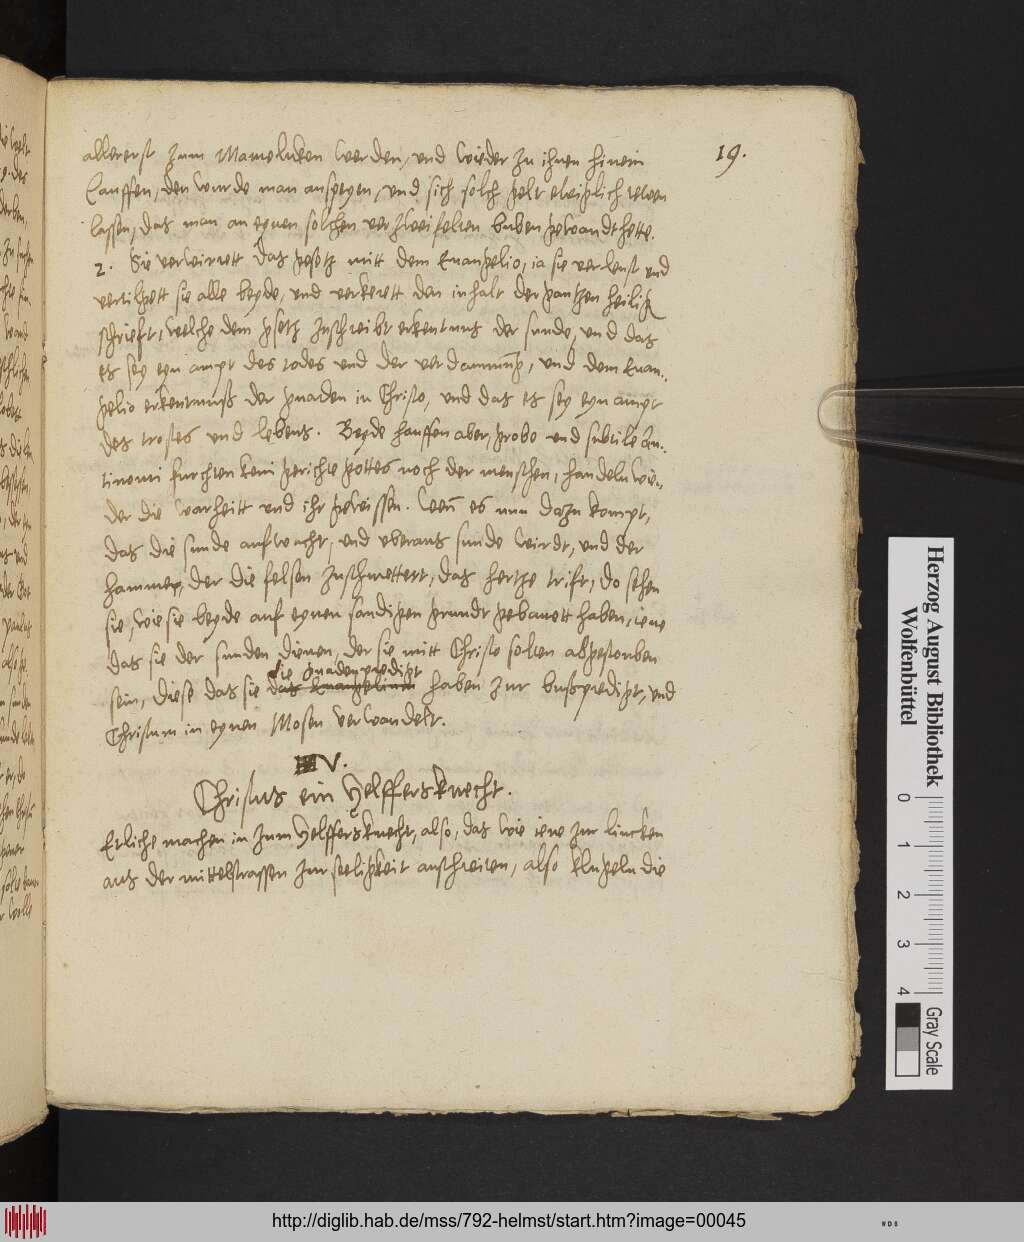 19.
allererst zum Mameluken werden, und wieder zu ihnen hinein
lauffen, den wurde man anspeyen, und sich solch gelt ewiglich rewen
lassen, das man an eynen solchen verzweifelten buben gewandt hette.
2. Sie verwirrett das gesetz mitt dem Euangelio, ia sie verleust und
vertilgett sie alle beyde, und verkerett den inhalt der gantzen heilig
schrieft, welche dem gsetz zuschreibt erkentnus der sunde, und das
es sey eyn ampt des todes und der verdammung, und dem Euan-
gelio erkentnuß der gnaden in Christo, und das es sey eyn ampt
des trostes und lebens. Beyde hauffen aber, grobe und subtile An-
tinomi furchten kein gerichte gottes noch der menschen, handeln wie-
der die warheitt und ihr gewissen. Wenn es nun dazu kompt,
das die sunde aufwacht, und uberaus sunde wirdt, und der
hammer, der die felsen zuschmettert, das hertze trift, do sehen
sie, wie sie beyde auf eynen sandigen grundt gebauett haben, iene
das sie der sunden dienen, der sie mitt Christo solten abgestorben
die gnadenpredigt
sein, diese das sie das Euangelium haben zur bußpredigt, und
Christum in eynen Mosen verwandelt.
V.
Christus ein Helffersknecht.
Etliche machen in zum Helffersknecht, also, das wie iene zur lincken
aus der mittelstrassen zur seeligkeit anschreiten, also klugeln die
Herzog August Bibliothek
Wolfenbüttel
0 1 2 3 4
Gray Scale
http://diglib.hab.de/mss/792-helmst/start.htm?image=00045